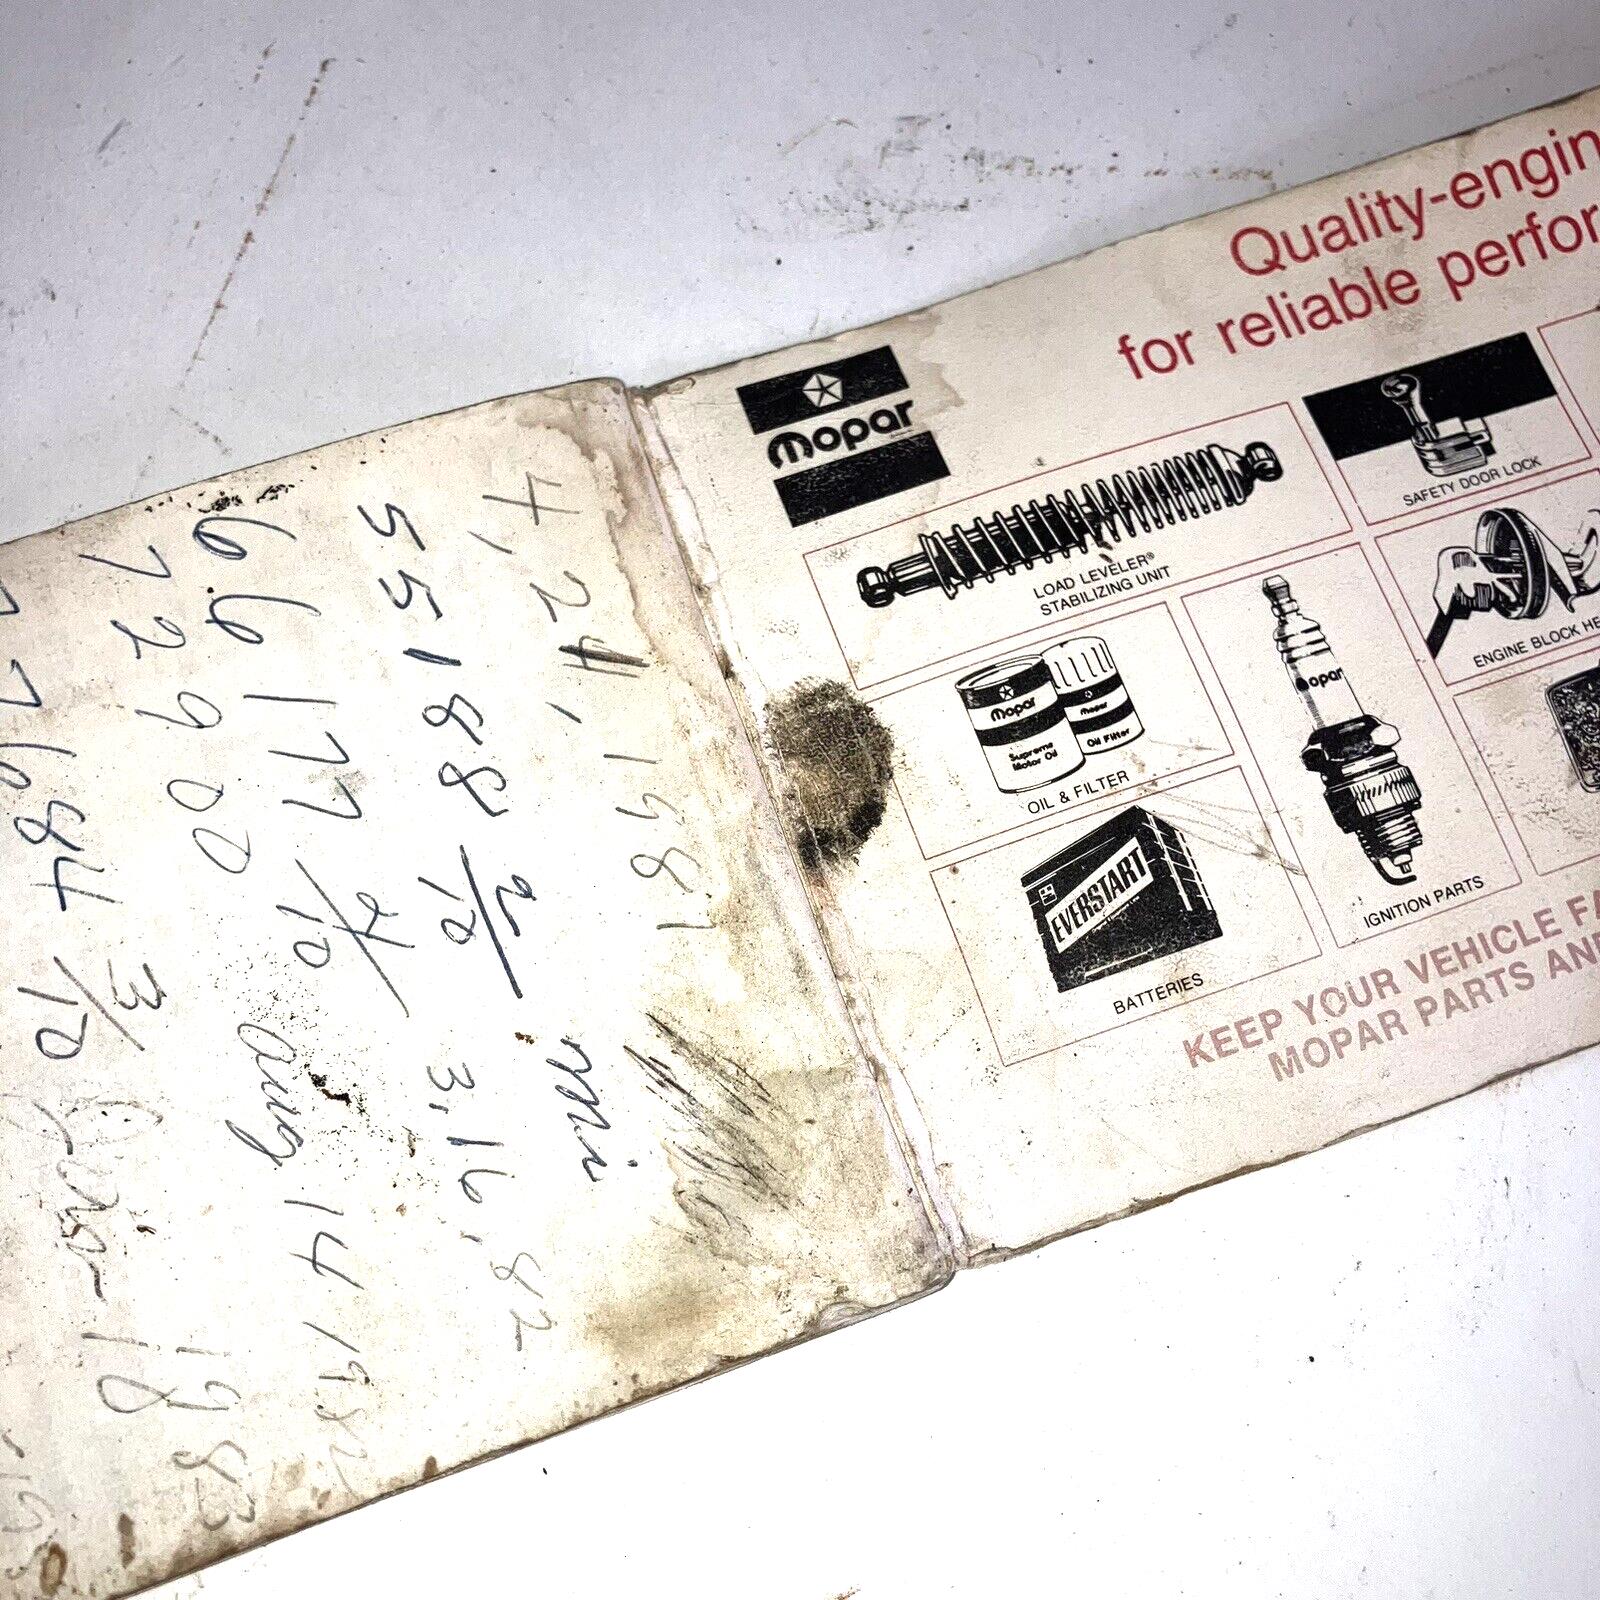 4,24,1981
55188 2/10 mi
3,16,82
66177 4/10 Aug 14 1982
72900
77684 3/10
18 1983
Mopar
Quality-engin
for reliable perfor
LOAD LEVELER®
STABILIZING UNIT
SAFETY DOOR LOCK
Mopar
Supreme
Motor Oil
Mopar
Oil Filter
OIL & FILTER
Mopar
IGNITION PARTS
ENGINE BLOCK HE
EVERSTART
BATTERIES
KEEP YOUR VEHICLE FA
MOPAR PARTS AND